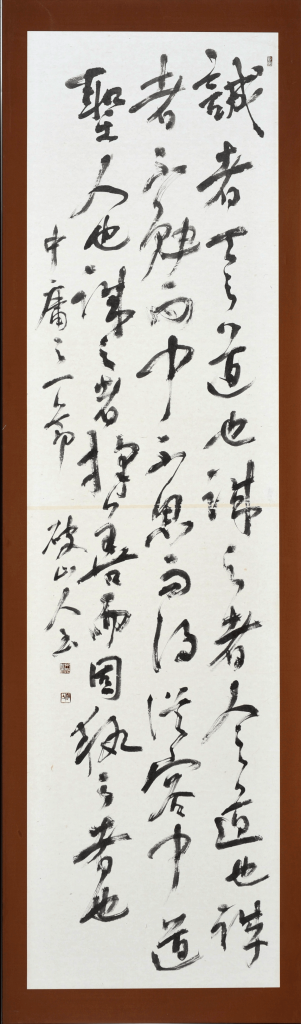 誠者天之道也誠之者人之道也誠
者不勉而中不思而得従容中道
聖人也誠之者擇善而固執之者也
中庸之一節 破山人書